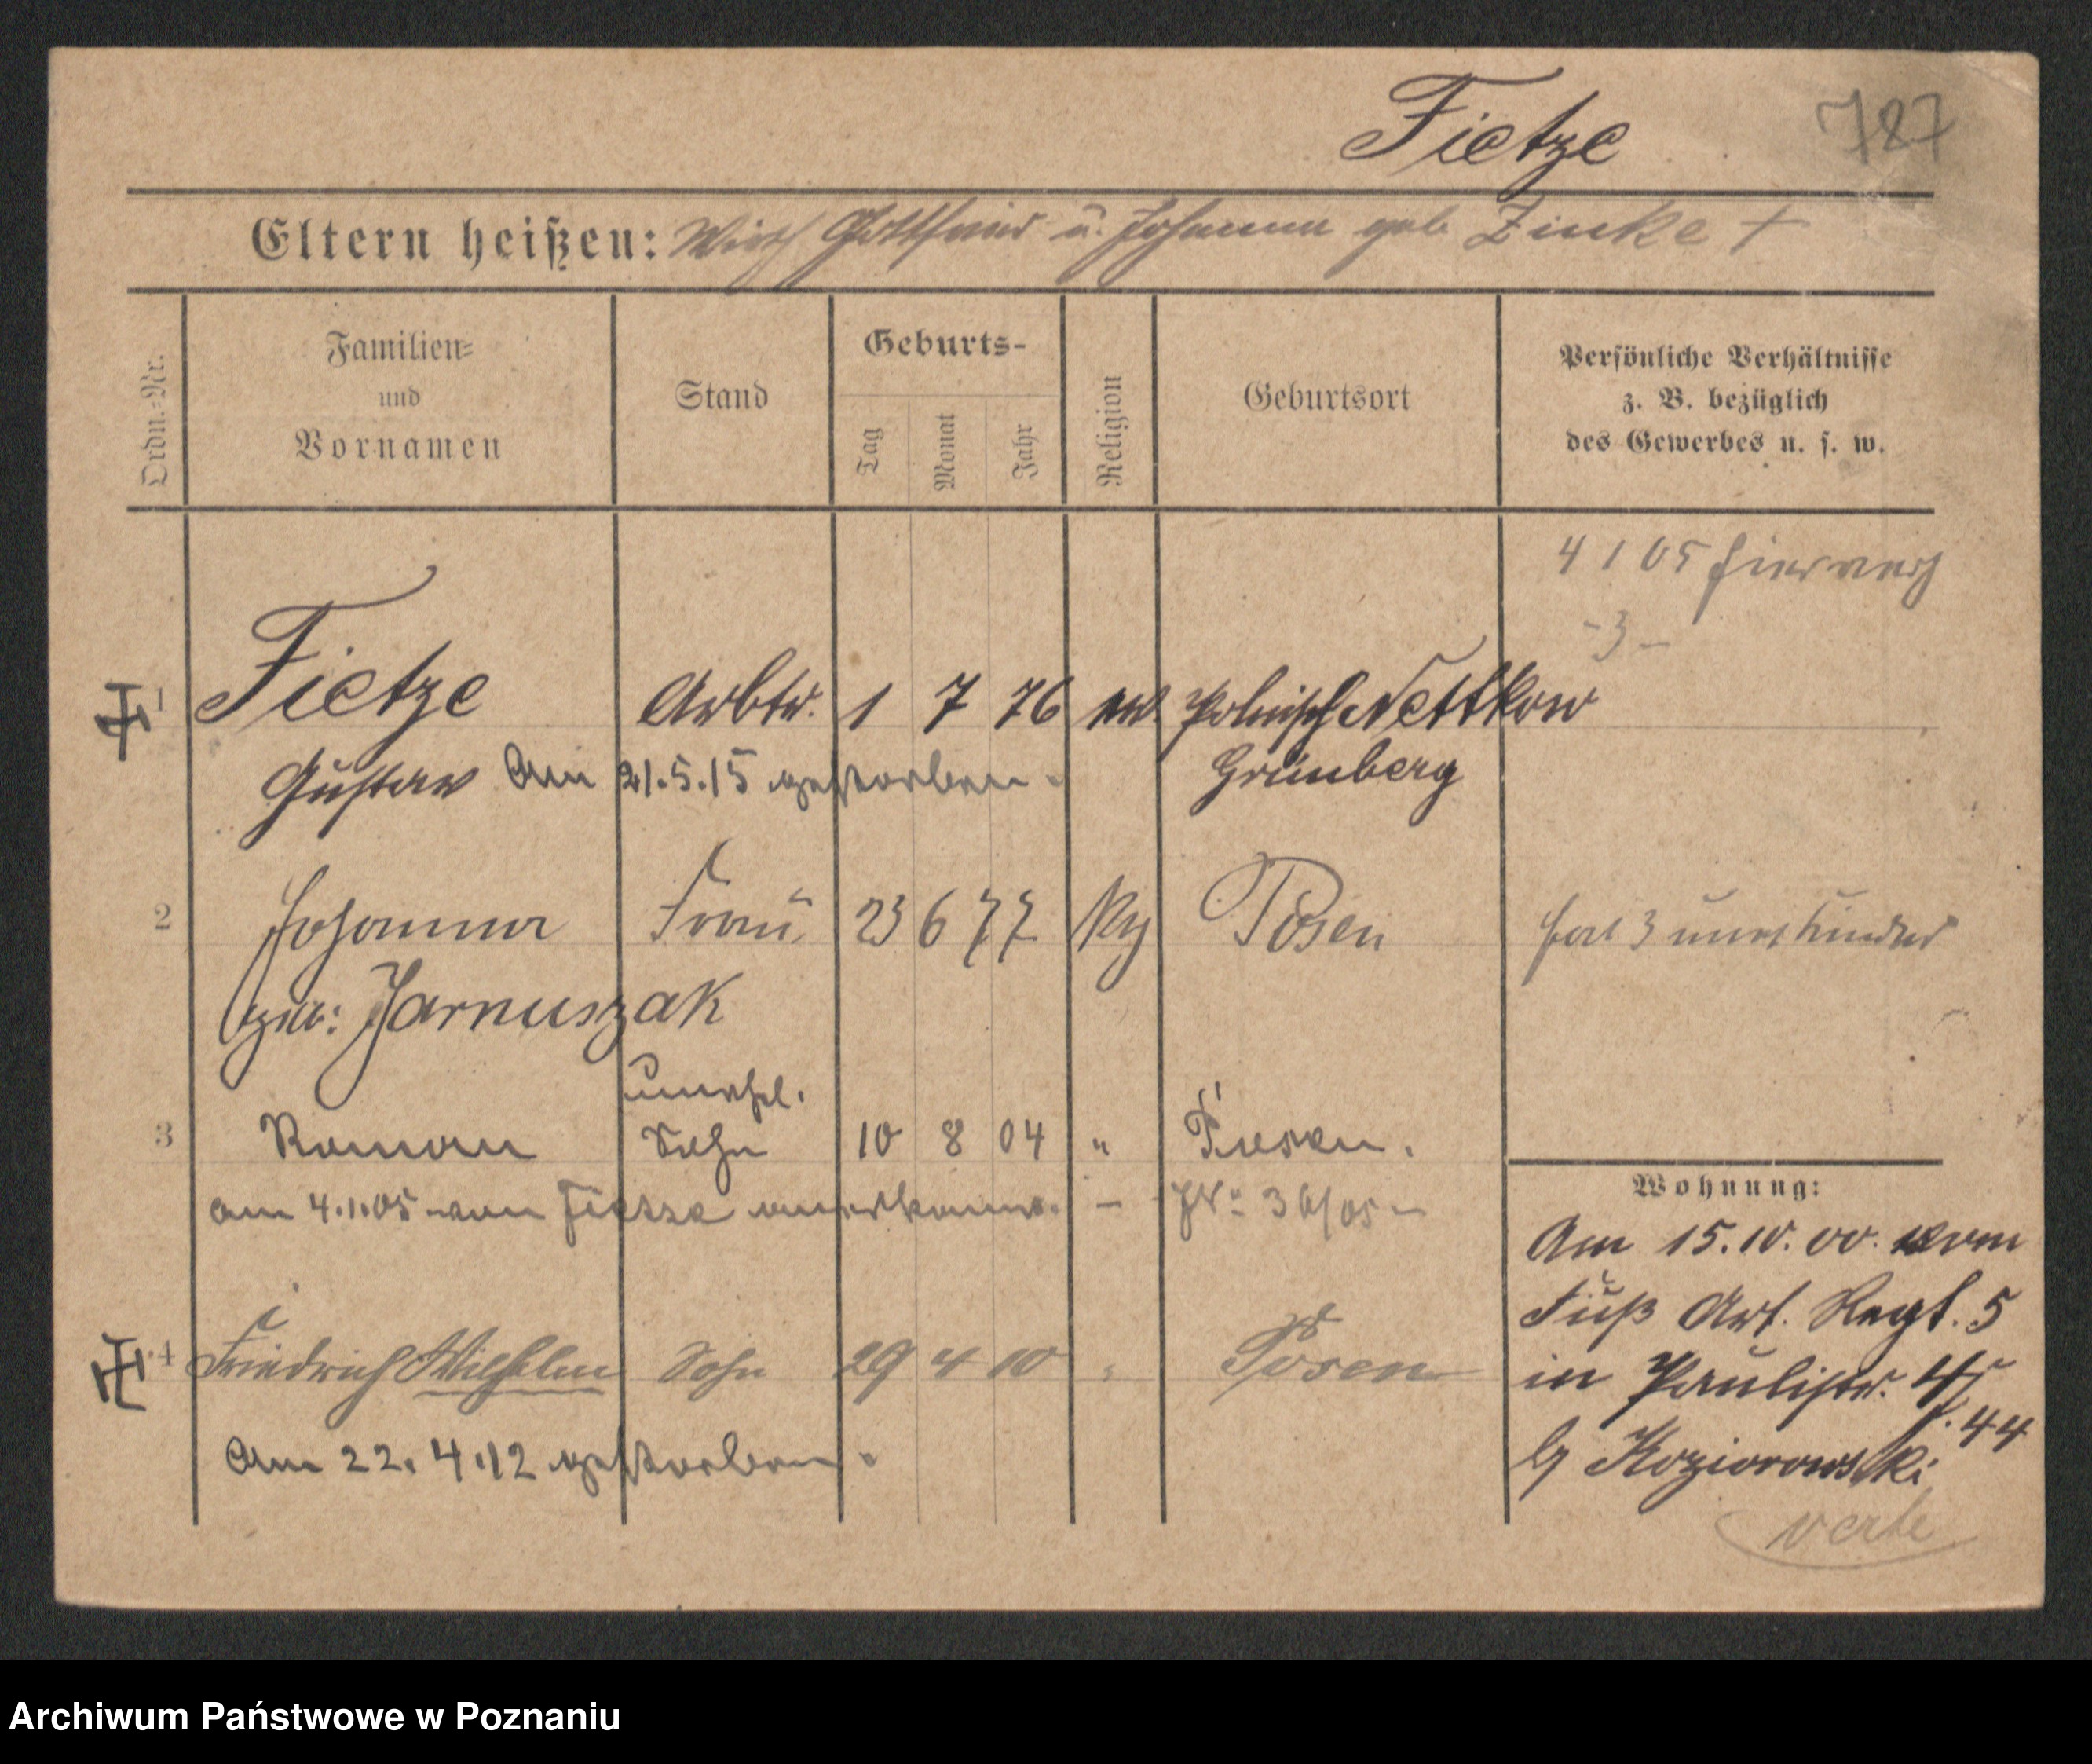 Fietze
787
Eltern heißen: Wirth Gottfried u. Johanna geb Zinke †
Ordn.-Nr.
Familien-
und
Vornamen
Stand
Geburts-
Tag
Monat
Jahr
Religion
Geburtsort
Persönliche Verhältnisse
z. B. bezüglich
des Gewerbes u. s. w.
4 1 05 hier
- 3 -
1 Fietze Arbtr. 1 7 76 ev Polnisch Nettkow
Gustav Am 21.5.15 gestorben. Grünberg
2 Johanna Frau 23 6 77 Posen hat 3 unehl Kinder
geb: Jarnuszak
unehel.
3 Roman Sohn 10 8 04 " Posen.
am 4.1.05 von Fietze anerkannt. - 36/05 -
4 Friedrich Wilhelm Sohn 29 4 10 " Posen
Am 22.4.12 gestorben.
Wohnung:
Am 15.10.00. vom
Fuß Art. Regt. 5
in Paulistr.
44
Koziorowski
verte
Archiwum Państwowe w Poznaniu